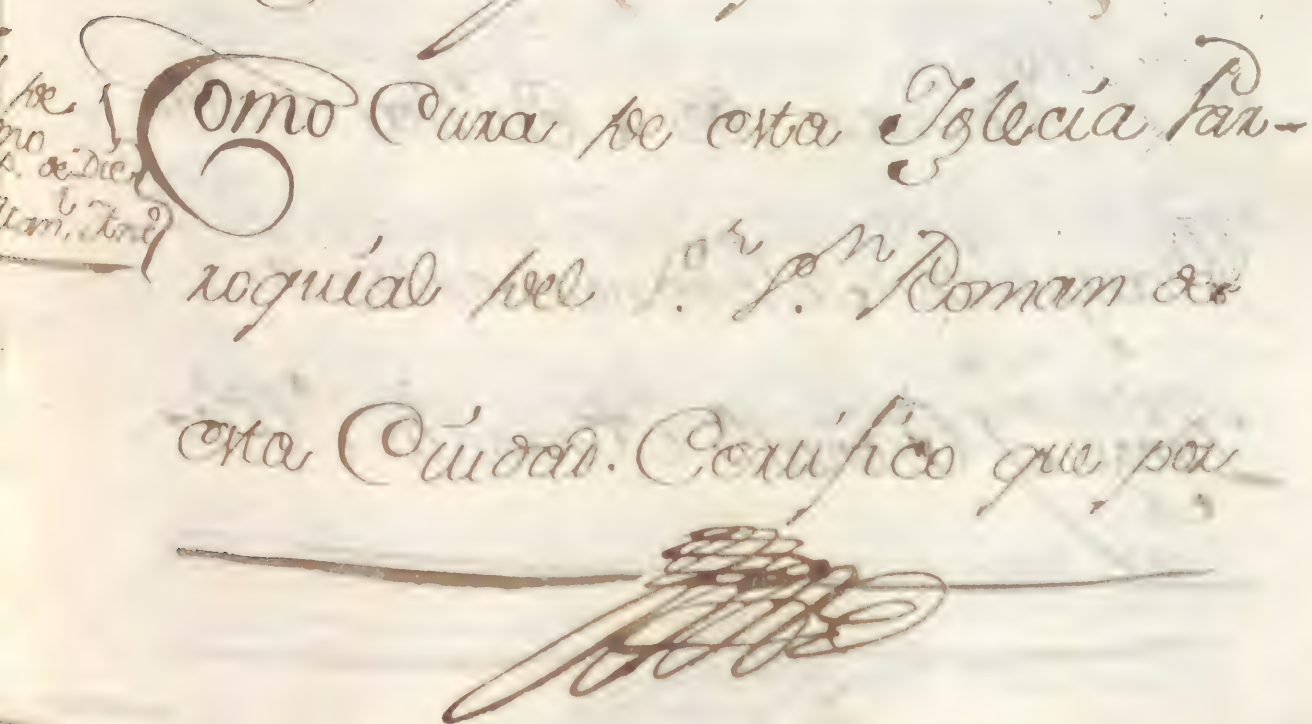 de
mo
de Die
Como Cura de esta Iglecia Par-
roquial del S.or S.n Roman de
esta Ciudad. Certifico que por